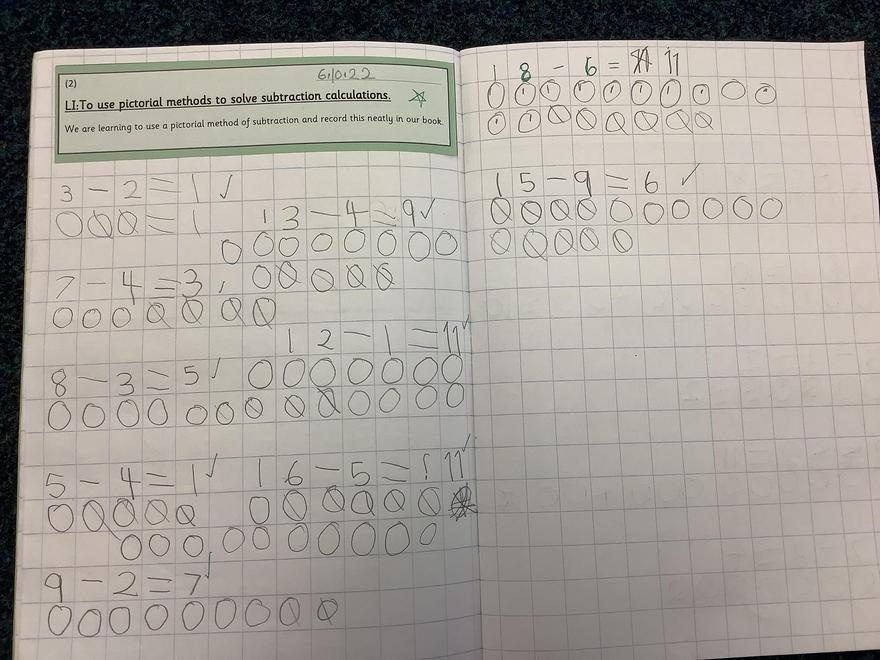 (2)
6.10.22
LI:To use pictorial methods to solve subtraction calculations.
We are learning to use a pictorial method of subtraction and record this neatly in our book.
3 - 2 = 1 ✓
= 1
13 - 4 = 9 ✓
7 - 4 = 3
12 - 1 = 11 ✓
8 - 3 = 5 ✓
5 - 4 = 1 ✓
16 - 5 = 11 ✓
9 - 2 = 7 ✓
18 - 6 = 11
15 - 9 = 6 ✓